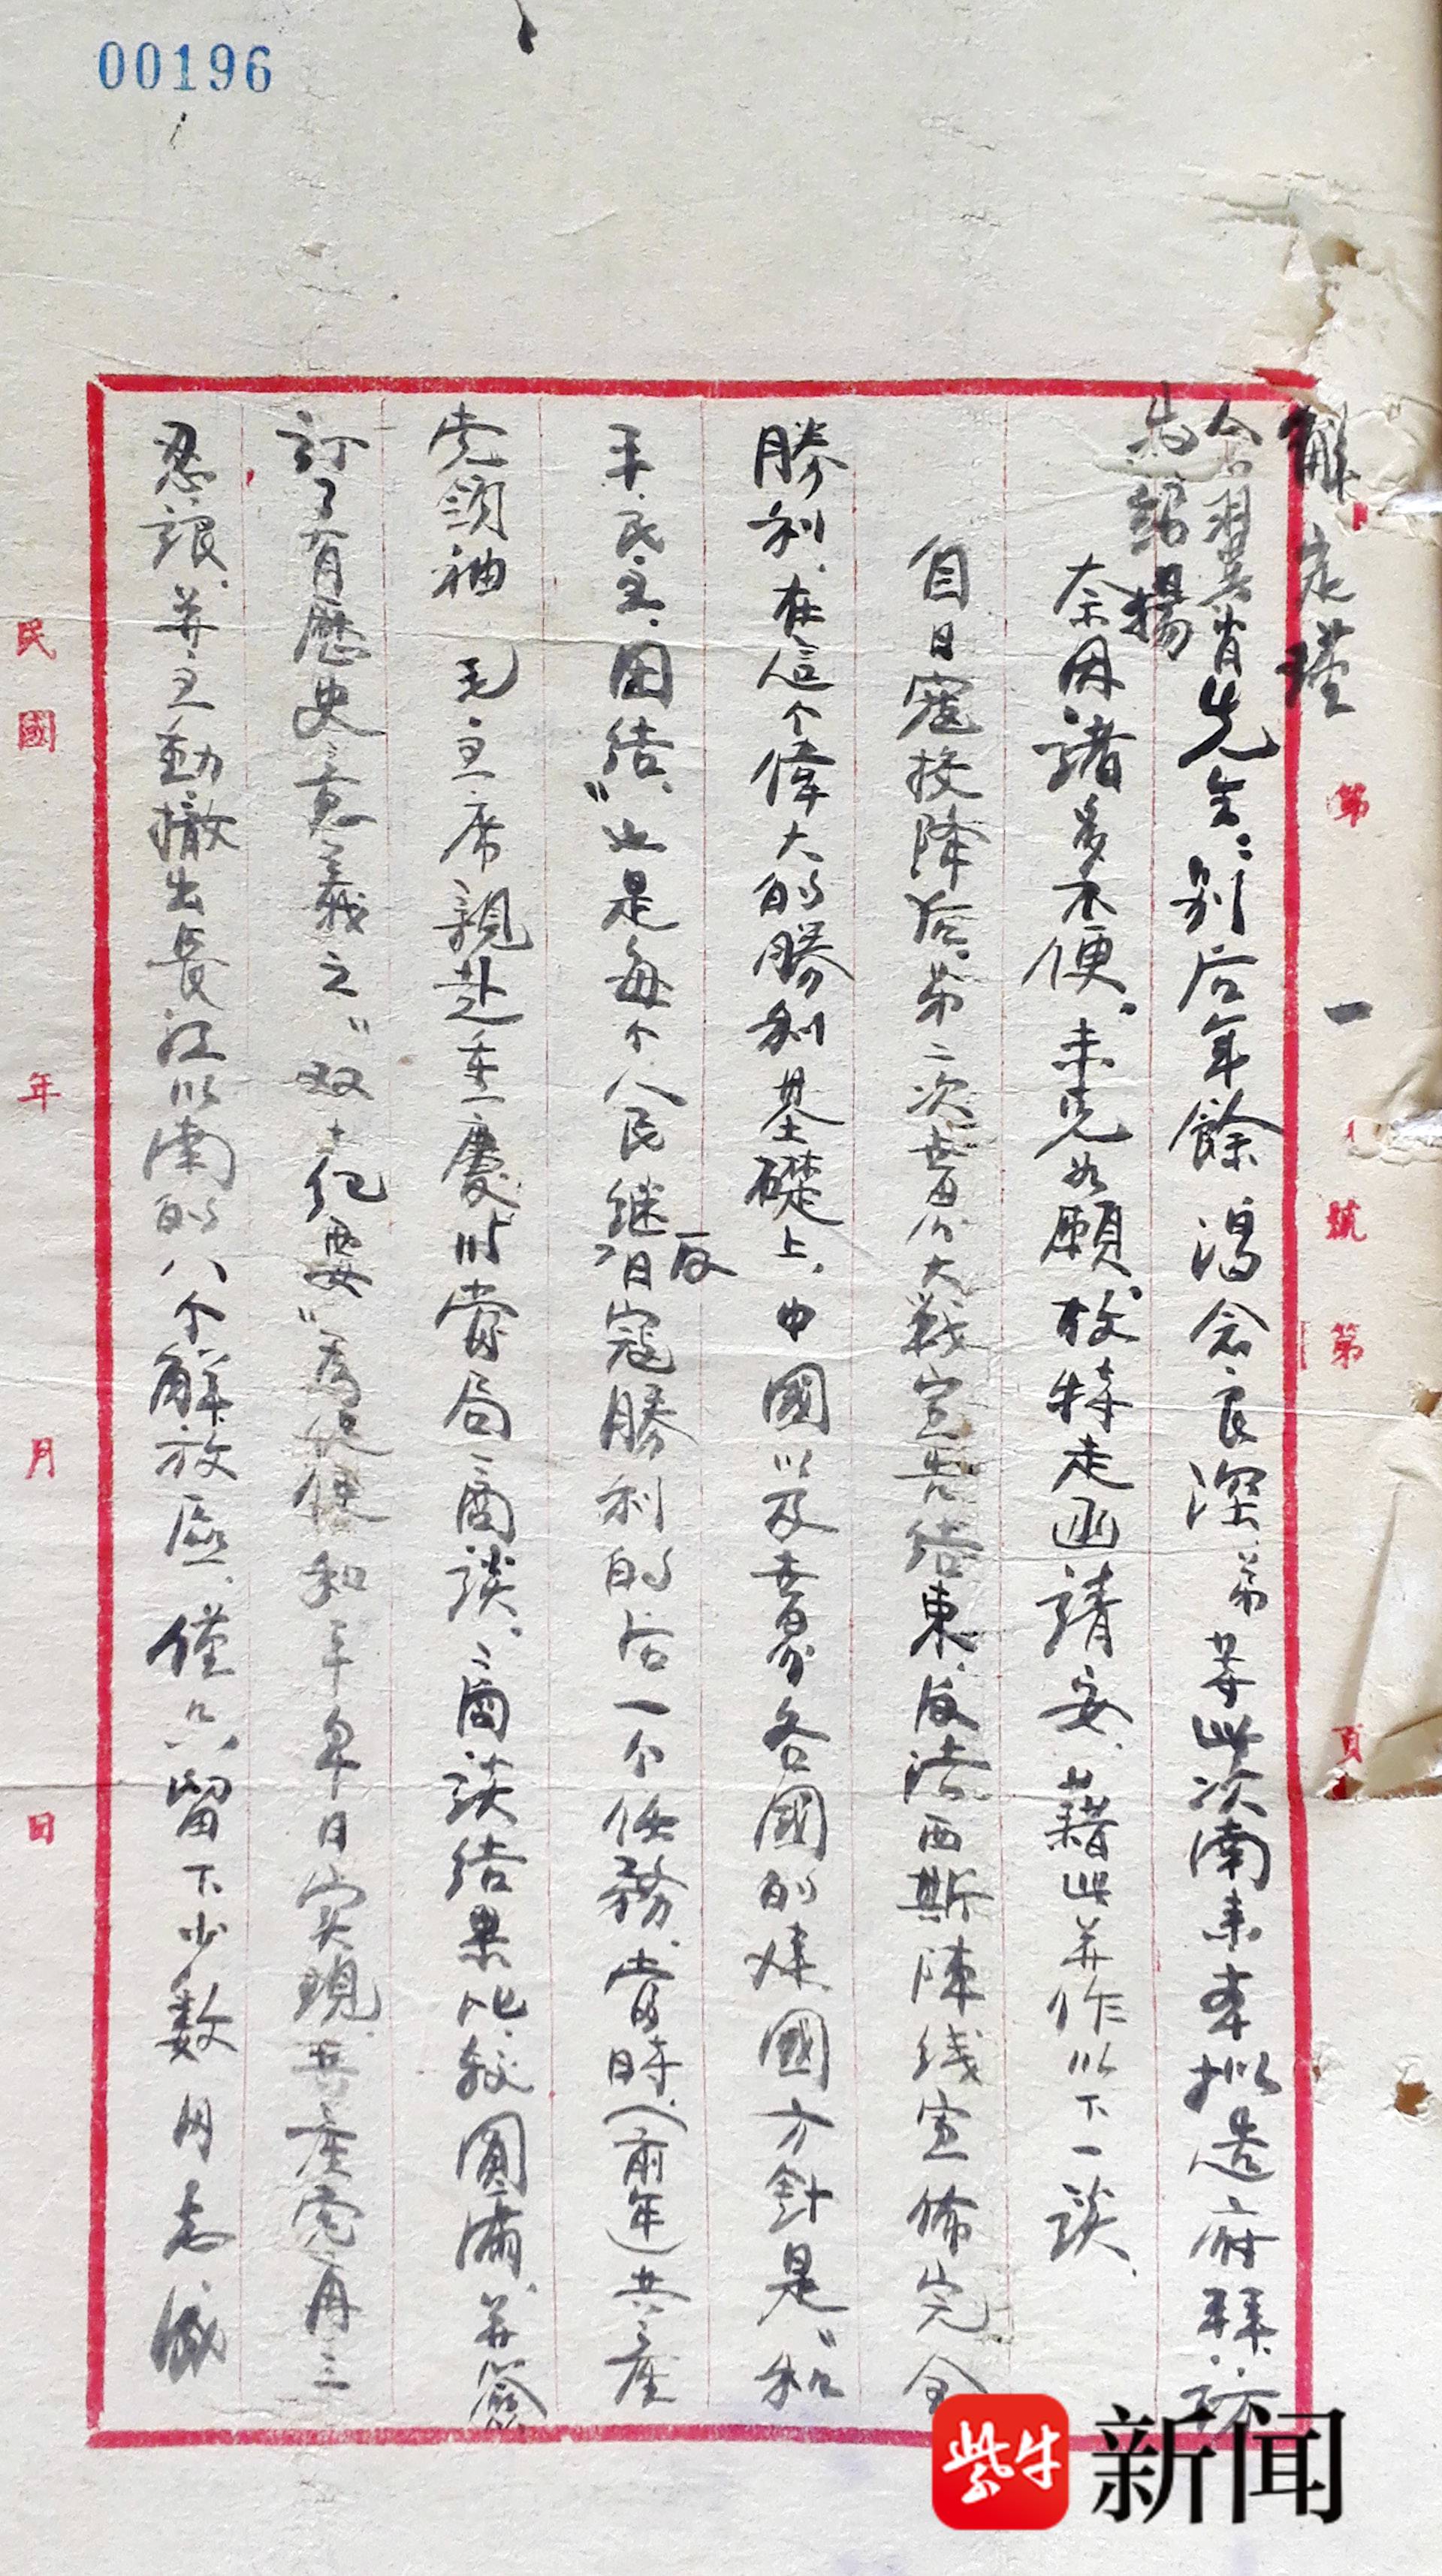 00196
解定瑾
第 一 號 第 頁
翼肖先生:别后年餘渴念良深弟等此次南来本拟造府拜访
紹揚
奈因諸多不便。未克如願。故特走函請安、藉此并作以下一談、
自日寇投降后、第二次世界大戰宣告结束、反法西斯陣线宣佈完全
勝利、在這个偉大的勝利基礎上、中國以及世界各國的建國方針是"和
平、民主、团结、"也是每个人民继反日寇勝利的后一个任務、當時、(前年)共产
党領袖 毛主席親赴重慶與當局商談、商談结果比较圓滿、并簽
訂了有歷史意義之"双十纪要"為促使和平早日实現、共产党再三
忍讓、并主動撤出長江以南的八个解放區、僅只留下少數同志
民國 年 月 日
紫牛
新闻